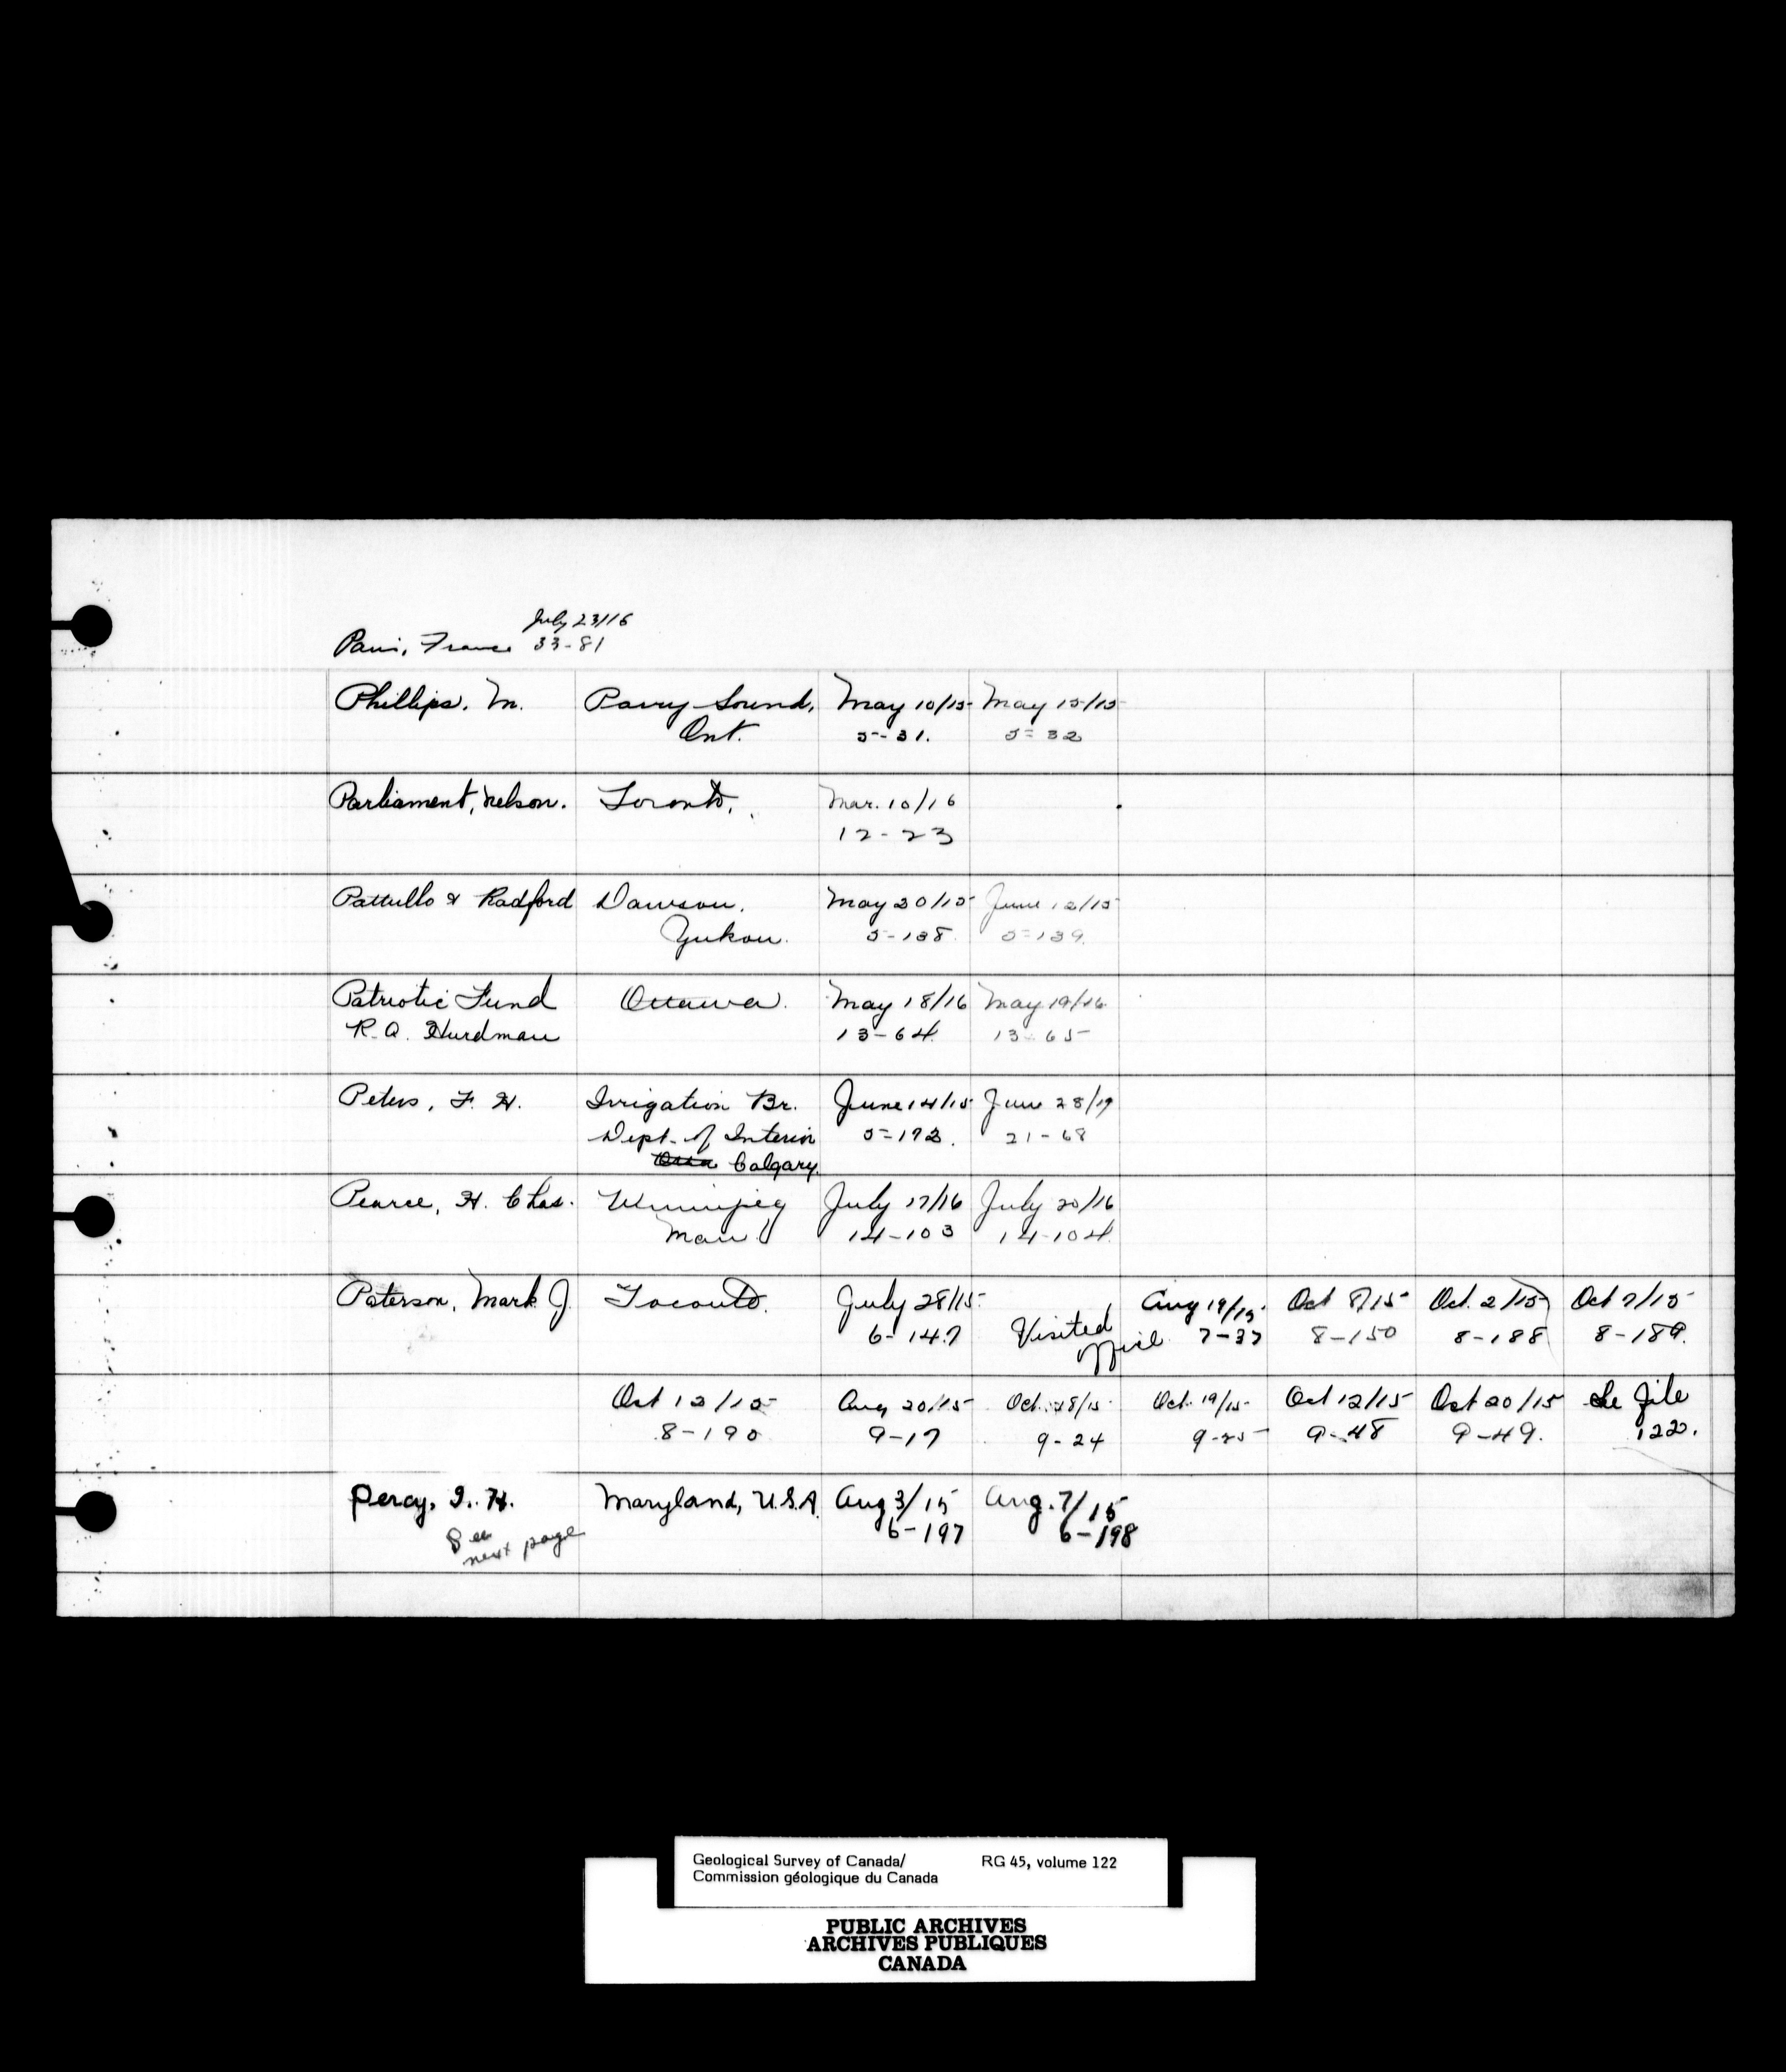 July 23/16
Paris, France 33-81
Phillips. M. Parry Sound, May 10/15 May 15/15
Ont. 5-31. 5-32
Parliament, Nelson. Toronto. Mar. 10/16
12-23
Pattullo & Radford Dawson. May 20/15 June 12/15
Yukon. 5-138. 5-139.
Patriotic Fund Ottawa. May 18/16 May 19/16
R.A. Hurdman 13-64. 13-65
Peters, F. H. Irrigation Br. June 14/15 June 28/19
Dept. of Interior 5-172. 21-68
Calgary.
Pearce, H. Chas. Winnipeg July 17/16 July 20/16
Man. 14-103 14-104.
Paterson, Mark J. Toronto. July 28/15. Visited Aug 19/15. Oct 8/15 Oct. 2/15 Oct 7/15
6-147 office 7-37 8-150 8-188 8-189.
Oct 12/15 Aug 20/15 Oct. 18/15 Oct. 19/15 Oct 12/15 Oct 20/15 See file
8-190 9-17 9-24 9-25 9-48 9-49. 122.
Percy, I. H. Maryland, U.S.A. Aug 3/15 Aug. 7/15
See 6-197 6-198
next page
Geological Survey of Canada/ RG 45, volume 122
Commission géologique du Canada
PUBLIC ARCHIVES
ARCHIVES PUBLIQUES
CANADA